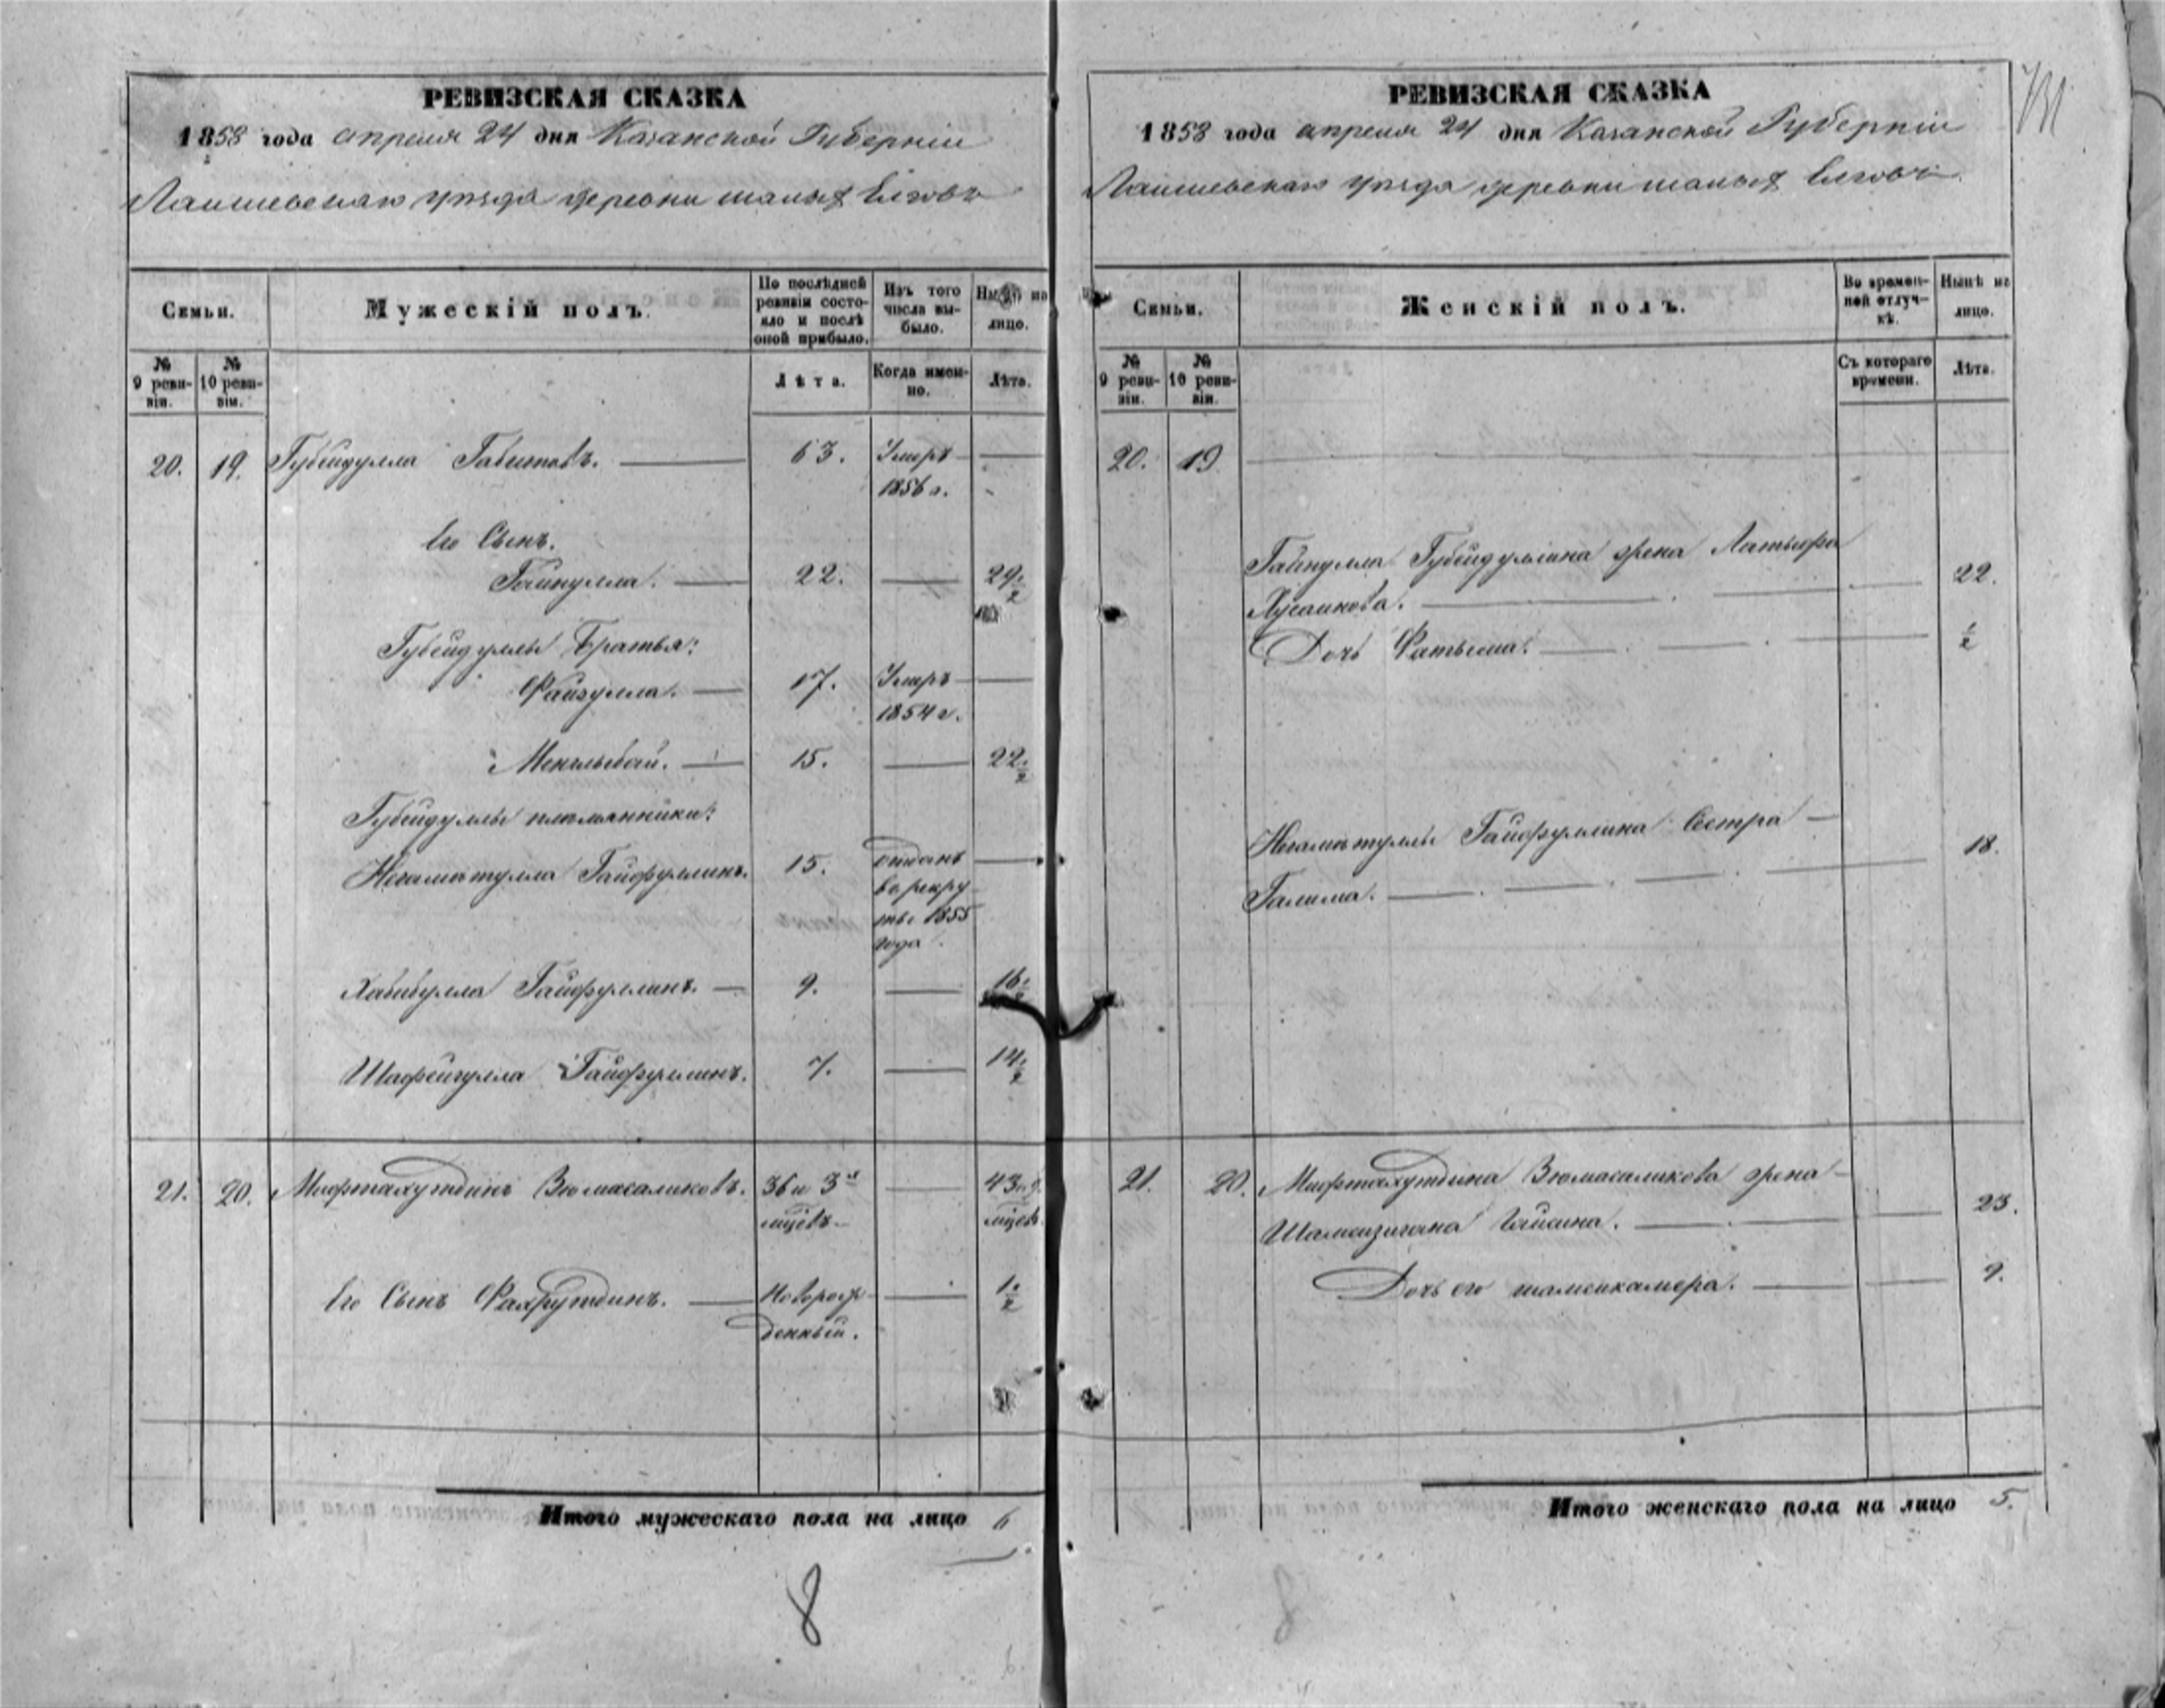 РЕВИЗСКАЯ СКАЗКА
1858 года апреля 24 дня Казанской Губерніи
Лаишевскаго уѣзда деревни малых Елговъ
Семьи.
Мужескій полъ.
По послѣдней ревизіи состояло и послѣ оной прибыло.
Изъ того числа выбыло.
Нынѣ на лицо.
№ 9 ревизіи.
№ 10 ревизіи.
Лѣта.
Когда именно.
Лѣта.
20. 19. Губейдулла Габитовъ. 63. Умеръ
1856 г.
Его Сынъ.
Гайнулла. 22. 29 1/2
Губейдуллы Братья:
Файзулла. 17. Умеръ
1854 г.
Менлыбай. 15. 22 1/2
Губейдуллы племянники:
Негаматулла Гайфуллинъ. 15. отданъ
в рекру
ты 1855
года.
Хабибулла Гайфуллинъ. 9. 16 1/2
Шафейгулла Гайфуллинъ. 7. 14 1/2
21. 20. Мифтахутдинъ 36 и 3х 43 и 9.
мцевъ мцевъ.
Его Сынъ Фахрутдинъ. Новорож
денный. 1/2
Итого мужескаго пола на лицо 6
8
РЕВИЗСКАЯ СКАЗКА
1858 года апреля 24 дня Казанской Губерніи
Лаишевскаго уѣзда деревни малых Елговъ
Семьи.
Женскій полъ.
Во временной отлучкѣ.
Нынѣ на лицо.
№ 9 ревизіи.
№ 10 ревизіи.
Съ котораго времени.
Лѣта.
20. 19
Гайнулла Губейдуллина жена
Хусаинова. 22.
Дочь Фатыма. 1/2
Негаматуллы Гайфуллина Сестра
Галима. 18.
21. 20. Мифтахутдина жена
23.
Дочь его 9.
Итого женскаго пола на лицо 5.